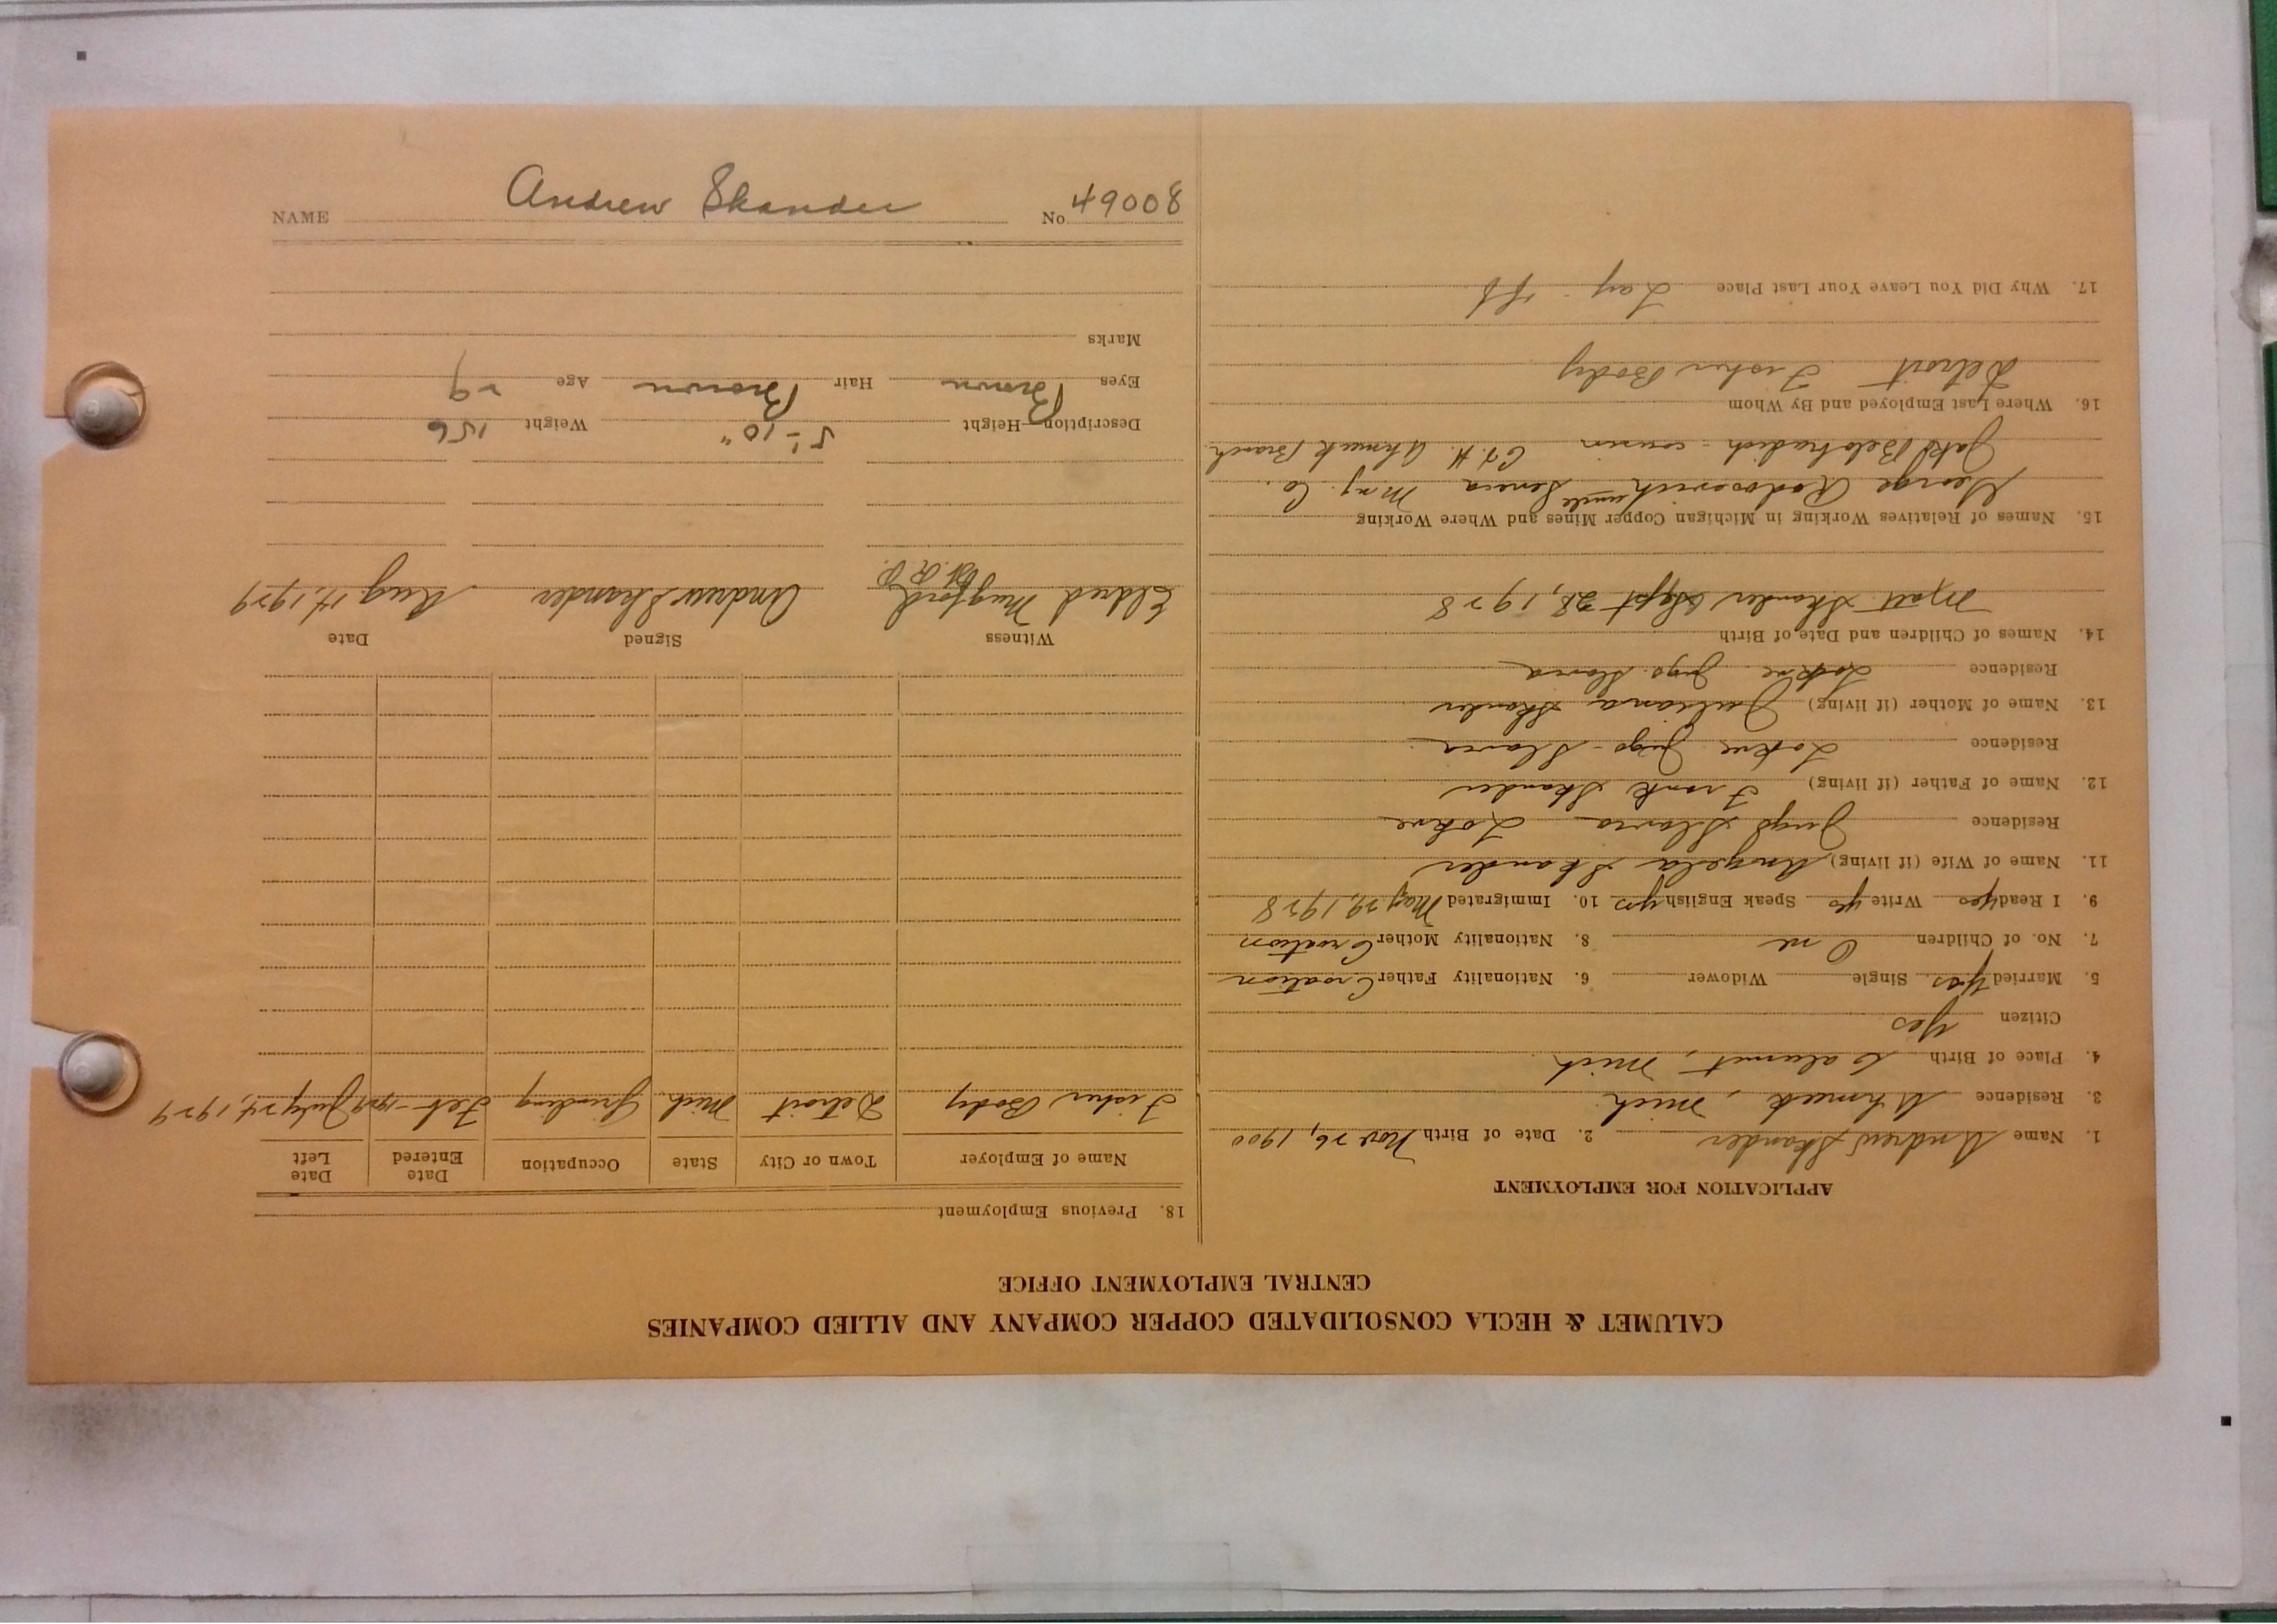 CALUMET & HECLA CONSOLIDATED COPPER COMPANY AND ALLIED COMPANIES
CENTRAL EMPLOYMENT OFFICE
APPLICATION FOR EMPLOYMENT
1. Name Andrew Skander 2. Date of Birth Nov 26, 1900
3. Residence Ahmeek, Mich.
4. Place of Birth Calumet, Mich
Citizen Yes
5. Married Yes. Single Widower 6. Nationality Father Croation
7. No. of Children One 8. Nationality Mother Croation
9. I Read yes Write yes Speak English yes 10. Immigrated May 29, 1928
11. Name of Wife (if living) Angela Skander
Residence Jugo Slavia Lokve
12. Name of Father (if living) Frank Skander
Residence Lokve Jugo-Slavia
13. Name of Mother (if living) Juliana Skander
Residence Lokve Jugo. Slavia
14. Names of Children and Date of Birth
Matt Skander Sept 28, 1928
15. Names of Relatives Working in Michigan Copper Mines and Where Working
George Radosevich uncle Seneca Mng. Co.
Jake Belobradich - cousin C & H. Ahmeek Branch
16. Where Last Employed and By Whom
Detroit Fisher Body
17. Why Did You Leave Your Last Place Lay off
18. Previous Employment
Name of Employer Town or City State Occupation Date Entered Date Left
Fisher Body Detroit Mich Grinding Feb-1929 July 24, 1929
Witness Signed Date
Eldred Mugford Andrew Skander Aug 14, 1929
Description—Height 5'-10" Weight 156
Eyes Brown Hair Brown Age 29
Marks
NAME Andrew Skander No 49008